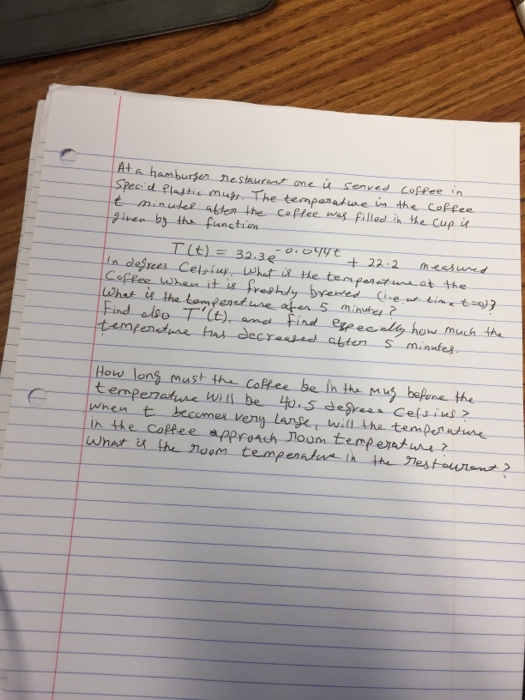 At a hamburger restaurant one is served coffee in
Special Plastic mugs. The temperature in the coffee
t minutes after the coffee was filled in the cup is
given by the function
T(t) = 32.3e^-0.044t + 22.2 measured
in degrees Celsius. What is the temperature of the
Coffee when it is freshly brewed (i.e. at time t=0)?
What is the temperature after 5 minutes?
Find also T'(t), and find especially how much the
temperature has decreased after 5 minutes.
How long must the coffee be in the mug before the
temperature will be 40.5 degrees Celsius?
when t becomes very large, will the temperature
in the coffee approach room temperature?
What is the room temperature in the restaurant?